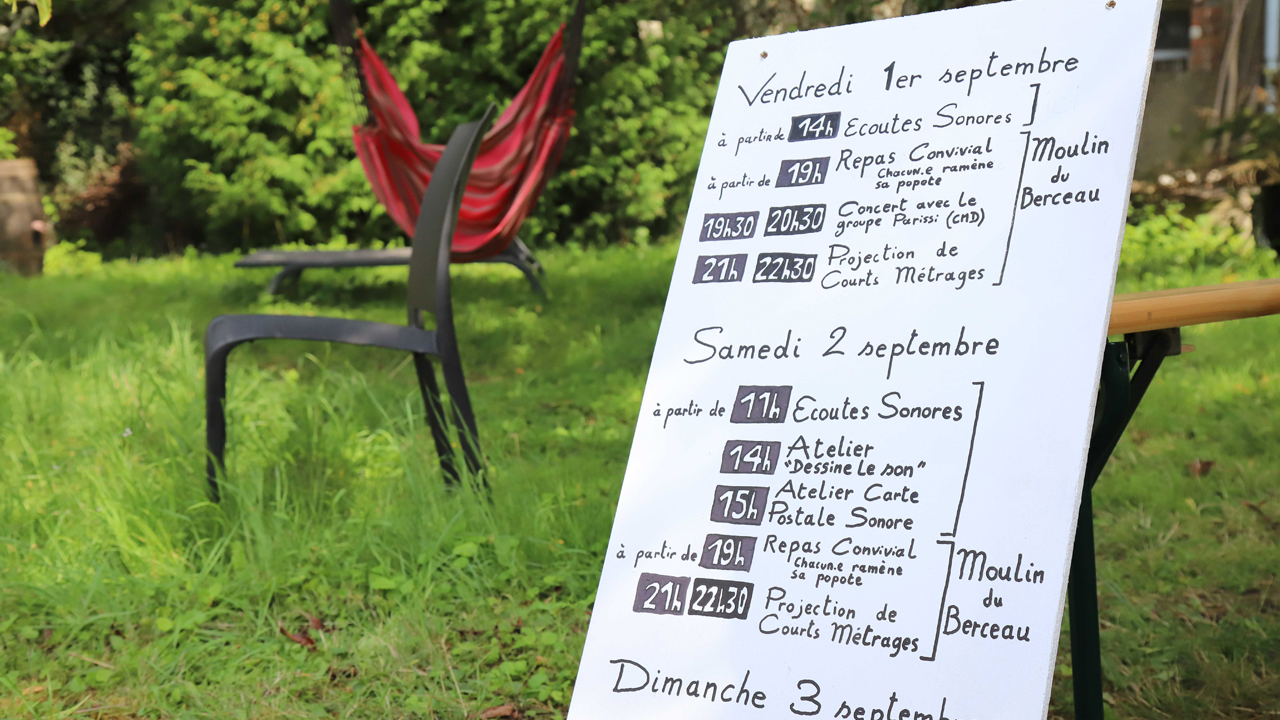 Vendredi 1er septembre
à partir de 14h Ecoutes Sonores
à partir de 19h Repas Convivial
Chacun.e ramène
sa popote
19h30 20h30 Concert avec le
groupe Parissi (CMD)
21h 22h30 Projection de
Courts Métrages
Moulin
du
Berceau
Samedi 2 septembre
à partir de 11h Ecoutes Sonores
14h Atelier
"Dessine le son"
15h Atelier Carte
Postale Sonore
à partir de 19h Repas Convivial
Chacun.e ramène
sa popote
21h 22h30 Projection de
Courts Métrages
Moulin
du
Berceau
Dimanche 3 septemb